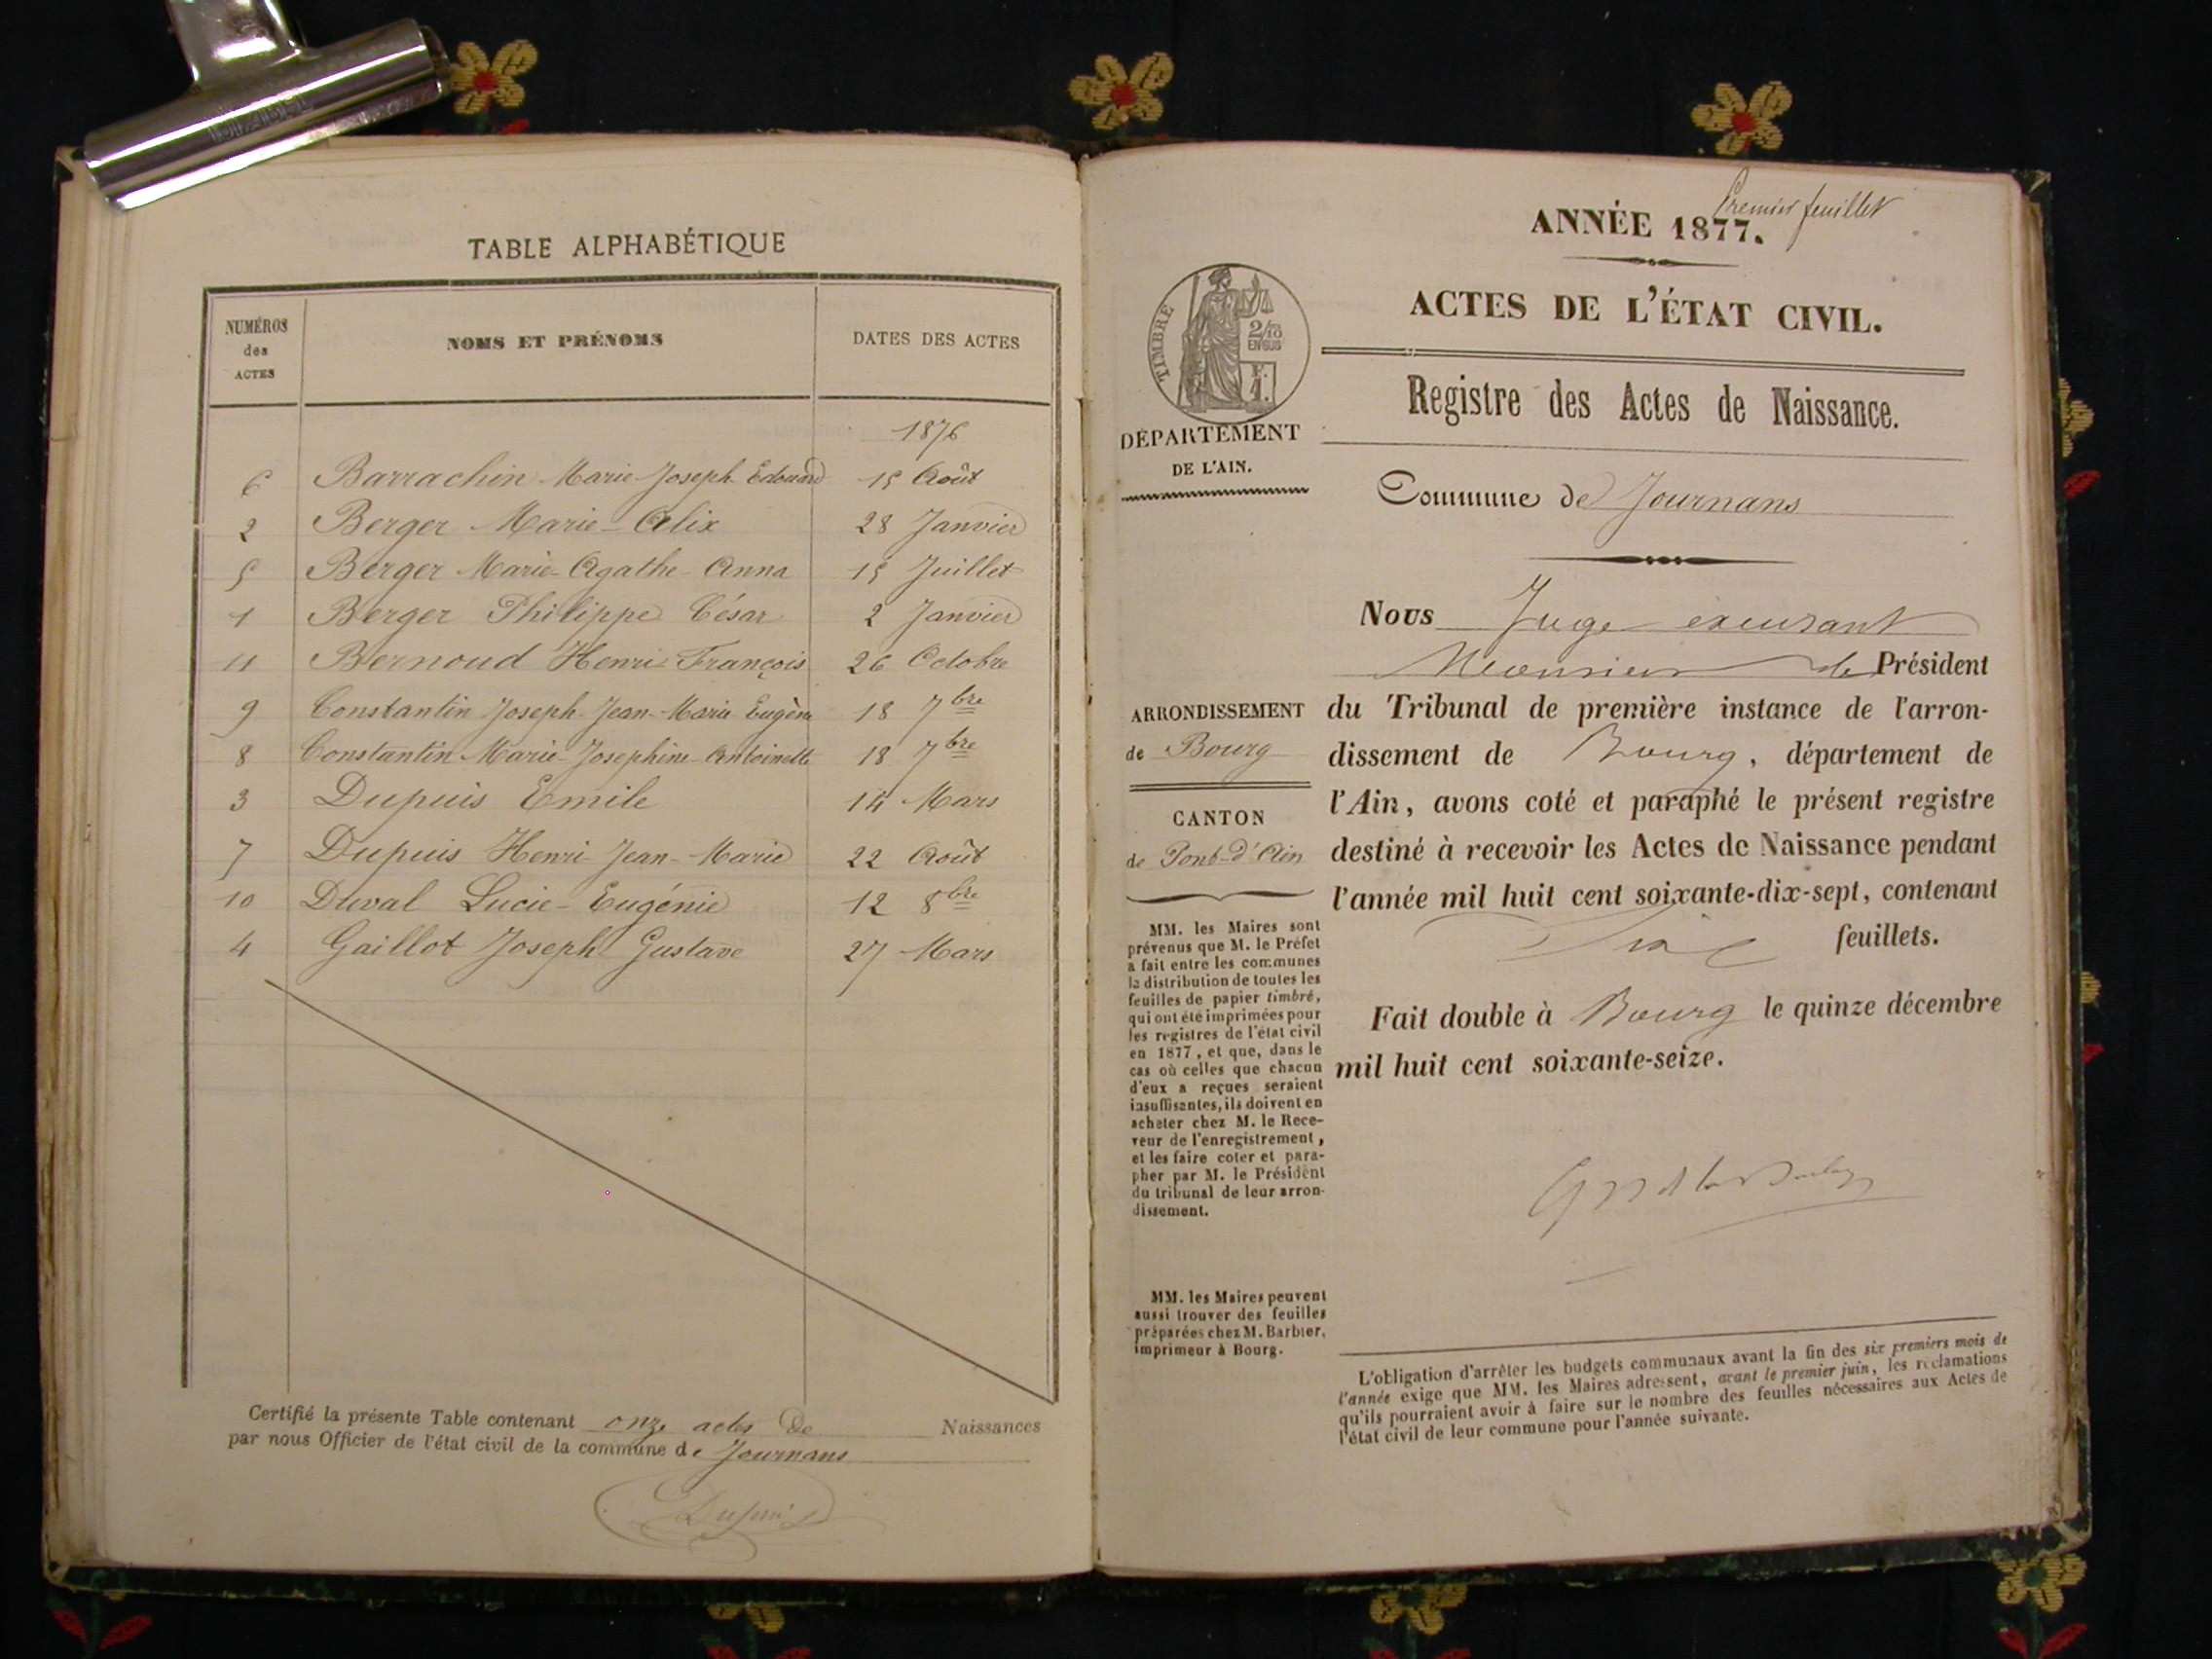 TABLE ALPHABÉTIQUE
NUMÉROS
des
ACTES
NOMS ET PRÉNOMS
DATES DES ACTES
1876
6 Barrachin Marie Joseph Edouard 15 Août
2 Berger Marie-Alix 28 Janvier
5 Berger Marie-Agathe-Anna 15 Juillet
1 Berger Philippe César 2 Janvier
11 Bernoud Henri François 26 Octobre
9 Constantin Joseph-Jean-Marie Eugène 18 7bre
8 Constantin Marie-Josephine-Antoinette 18 7bre
3 Dupuis Emile 14 Mars
7 Dupuis Henri-Jean-Marie 22 Août
10 Duval Lucie-Eugénie 12 8bre
4 Gaillot Joseph Gustave 27 Mars
Certifié la présente Table contenant onze actes de Naissances
par nous Officier de l'état civil de la commune de Journans
Dupuis
Premier feuillet
ANNÉE 1877.
ACTES DE L'ÉTAT CIVIL.
TIMBRE
2/10
EN SUS
Registre des Actes de Naissance.
DÉPARTEMENT
DE L'AIN.
Commune de Journans
Nous Juge excusant
Monsieur le Président
du Tribunal de première instance de l'arron-
dissement de Bourg, département de
l'Ain, avons coté et paraphé le présent registre
destiné à recevoir les Actes de Naissance pendant
l'année mil huit cent soixante-dix-sept, contenant
feuillets.
Fait double à Bourg le quinze décembre
mil huit cent soixante-seize.
ARRONDISSEMENT
de Bourg
CANTON
de Pont-d'Ain
MM. les Maires sont
prévenus que M. le Préfet
a fait entre les communes
la distribution de toutes les
feuilles de papier timbré,
qui ont été imprimées pour
les registres de l'état civil
en 1877, et que, dans le
cas où celles que chacun
d'eux a reçues seraient
insuffisantes, ils doivent en
acheter chez M. le Rece-
veur de l'enregistrement,
et les faire coter et para-
pher par M. le Président
du tribunal de leur arron-
dissement.
MM. les Maires peuvent
aussi trouver des feuilles
préparées chez M. Barbier,
imprimeur à Bourg.
L'obligation d'arrêter les budgets communaux avant la fin des six premiers mois de
l'année exige que MM. les Maires adressent, avant le premier juin, les réclamations
qu'ils pourraient avoir à faire sur le nombre des feuilles nécessaires aux Actes de
l'état civil de leur commune pour l'année suivante.